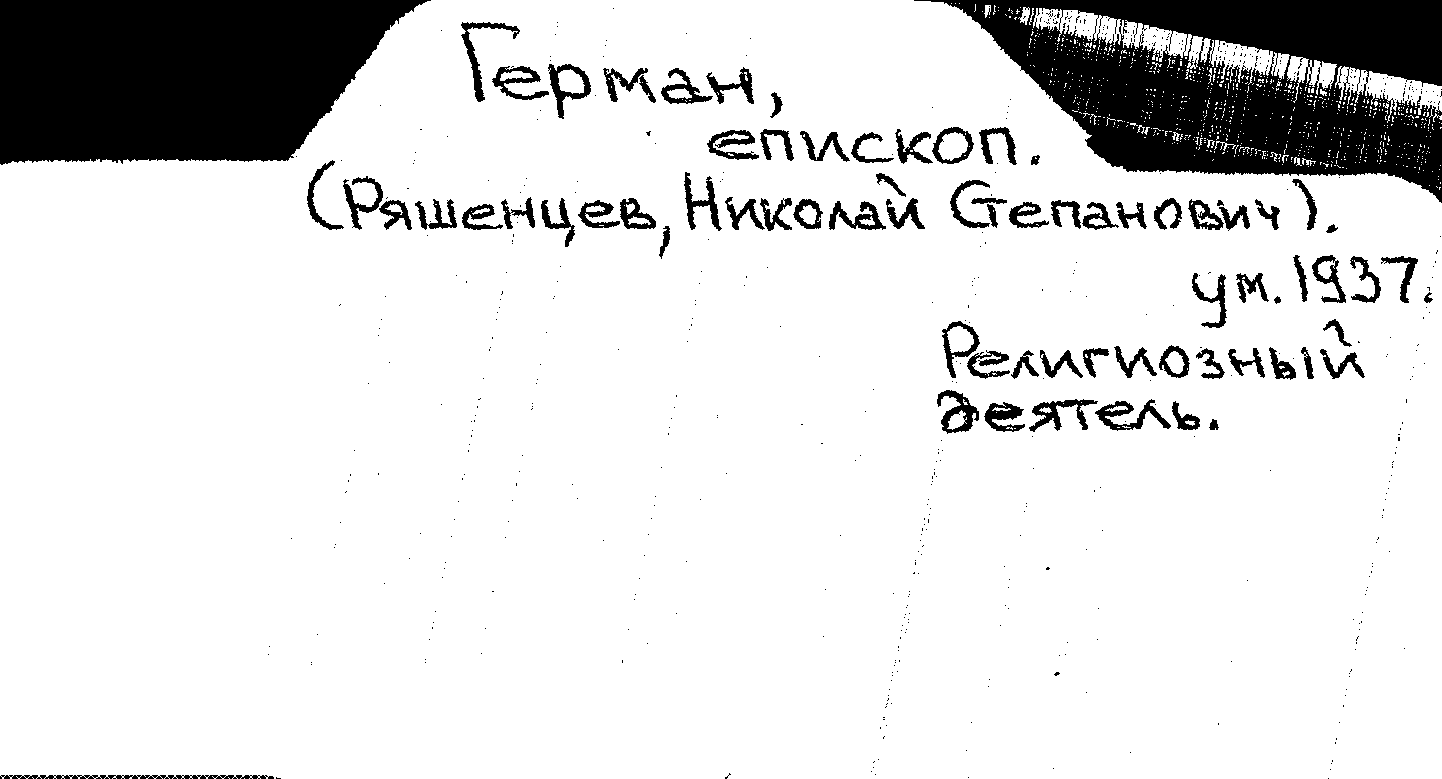 Герман,
епископ.
(Ряшенцев, Николай Степанович).
ум. 1937.
Религиозный
деятель.